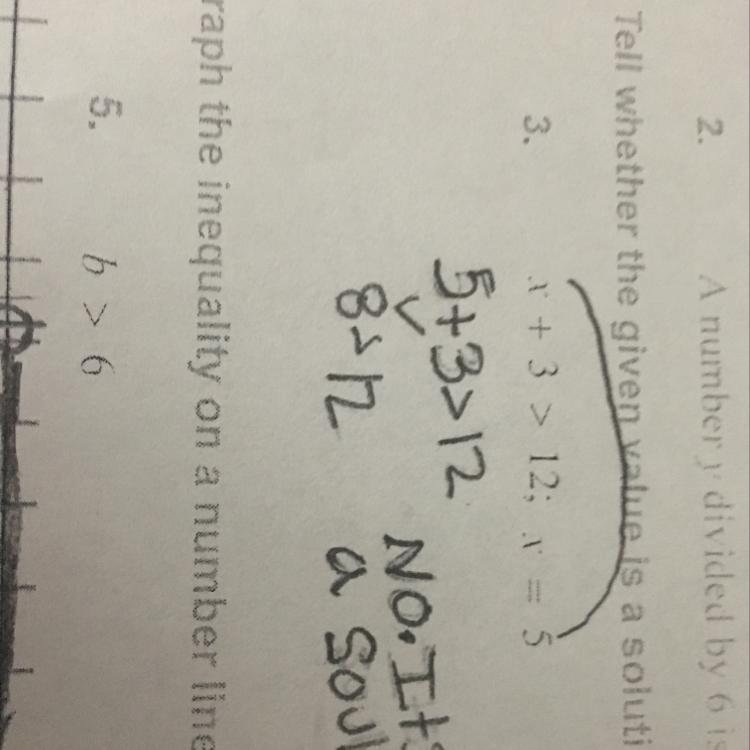 2. A number y divided by 6 is
Tell whether the given value is a soluti
3. x + 3 > 12; x = 5
5+3>12 No. It's
8>12 a Soul
raph the inequality on a number line
5. b > 6